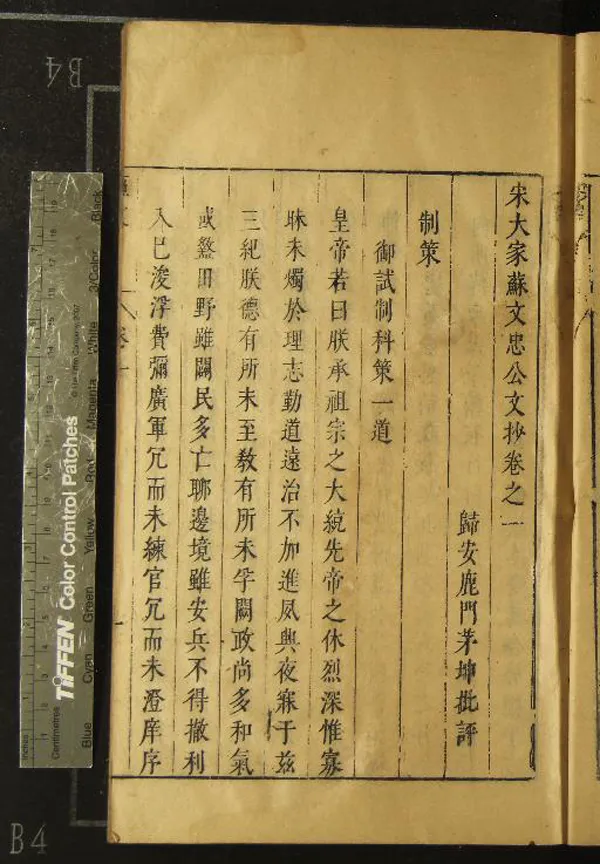 宋大家蘇文忠公文抄卷之一
歸安鹿門茅坤批評
制策
御試制科策一道
皇帝若曰朕承祖宗之大統先帝之休烈深惟寡
昧未燭於理志勤道遠治不加進夙興夜寐于兹
三紀朕德有所未至教有所未孚闕政尚多和氣
或盭田野雖闢民多亡聊邊境雖安兵不得撤利
入已浚浮費彌廣軍冗而未練官冗而未澄庠序
B4
B4
TIFFEN Color Control Patches
Centimetres
Inches
Blue
Cyan
Green
Yellow
Red
Magenta
White
3/Color
Black